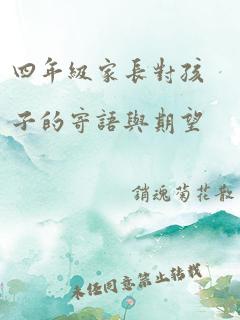 四年級家長對孩
子的寄語與期望
銷魂菊花散
未經同意禁止轉載